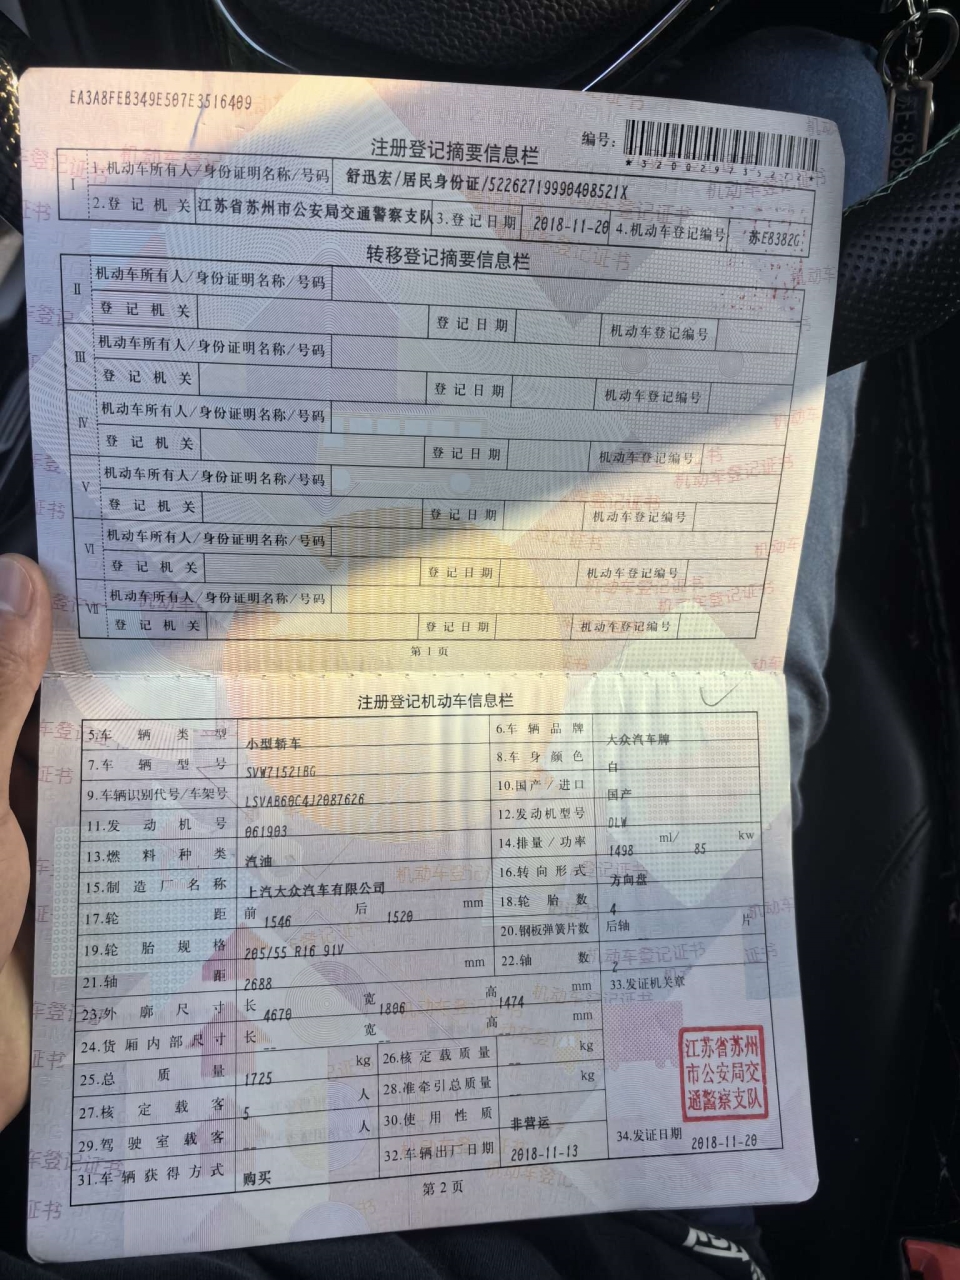 EA3A8FEB349E507E3516409
编号:
注册登记摘要信息栏
I 1.机动车所有人/身份证明名称/号码 舒迅宏/居民身份证/52262719990408521X
2.登记机关 江苏省苏州市公安局交通警察支队 3.登记日期 2018-11-20 4.机动车登记编号 苏E8382G
转移登记摘要信息栏
II 机动车所有人/身份证明名称/号码
登记机关 登记日期 机动车登记编号
III 机动车所有人/身份证明名称/号码
登记机关 登记日期 机动车登记编号
IV 机动车所有人/身份证明名称/号码
登记机关 登记日期 机动车登记编号
V 机动车所有人/身份证明名称/号码
登记机关 登记日期 机动车登记编号
VI 机动车所有人/身份证明名称/号码
登记机关 登记日期 机动车登记编号
VII 机动车所有人/身份证明名称/号码
登记机关 登记日期 机动车登记编号
第1页
注册登记机动车信息栏
5.车辆类型 小型轿车 6.车辆品牌 大众汽车牌
7.车辆型号 SVW71521BG 8.车身颜色 白
9.车辆识别代号/车架号 LSVAB60C4J2087626 10.国产/进口 国产
11.发动机号 061903 12.发动机型号 DLW
13.燃料种类 汽油 14.排量/功率 1498 ml/ 85 kw
15.制造厂名称 上汽大众汽车有限公司 16.转向形式 方向盘
17.轮距 前 1546 后 1520 mm 18.轮胎数 4
19.轮胎规格 205/55 R16 91V 20.钢板弹簧片数 后轴 片
21.轴距 2688 mm 22.轴数 2
23.外廓尺寸 长 4670 宽 1806 高 1474 mm 33.发证机关章
24.货厢内部尺寸 长 -- 宽 -- 高 -- mm
25.总质量 1725 kg 26.核定载质量 -- kg
27.核定载客 5 人 28.准牵引总质量 -- kg
29.驾驶室载客 -- 人 30.使用性质 非营运
31.车辆获得方式 购买 32.车辆出厂日期 2018-11-13 34.发证日期 2018-11-20
江苏省苏州
市公安局交
通警察支队
第2页